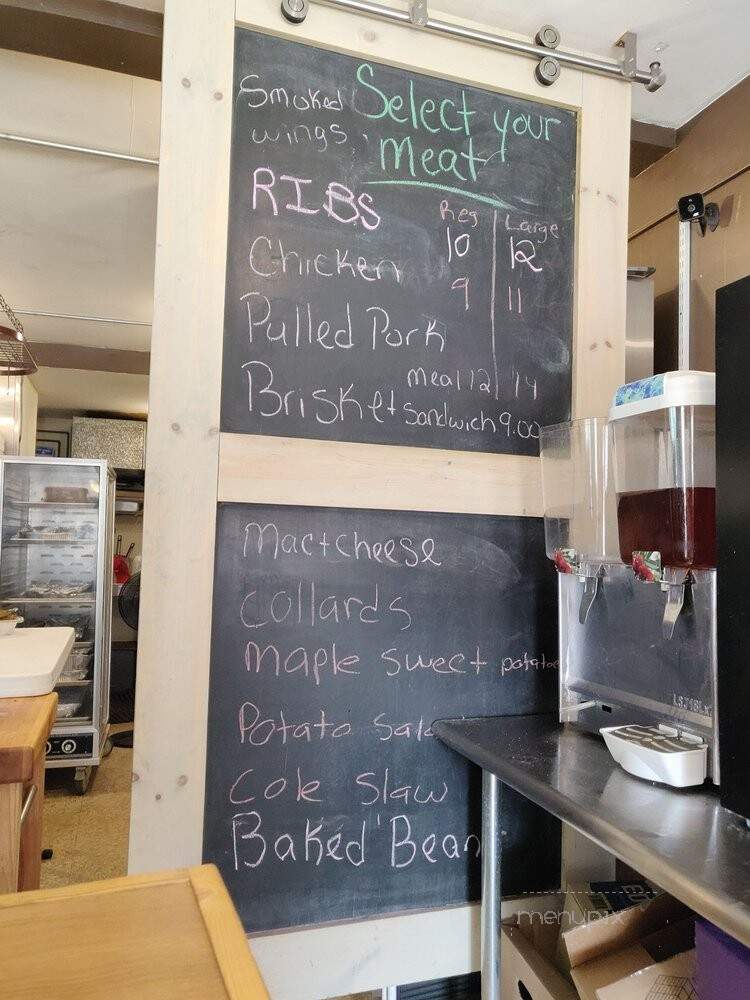 Smoked Select your
wings Meat
RIBS Reg Large
10 12
Chicken 9 11
Pulled Pork
meal 12 14
Brisket Sandwich 9.00
Mac+cheese
Collards
Maple sweet potatoe
Potato Sala
Cole Slaw
Baked Bean
menupix